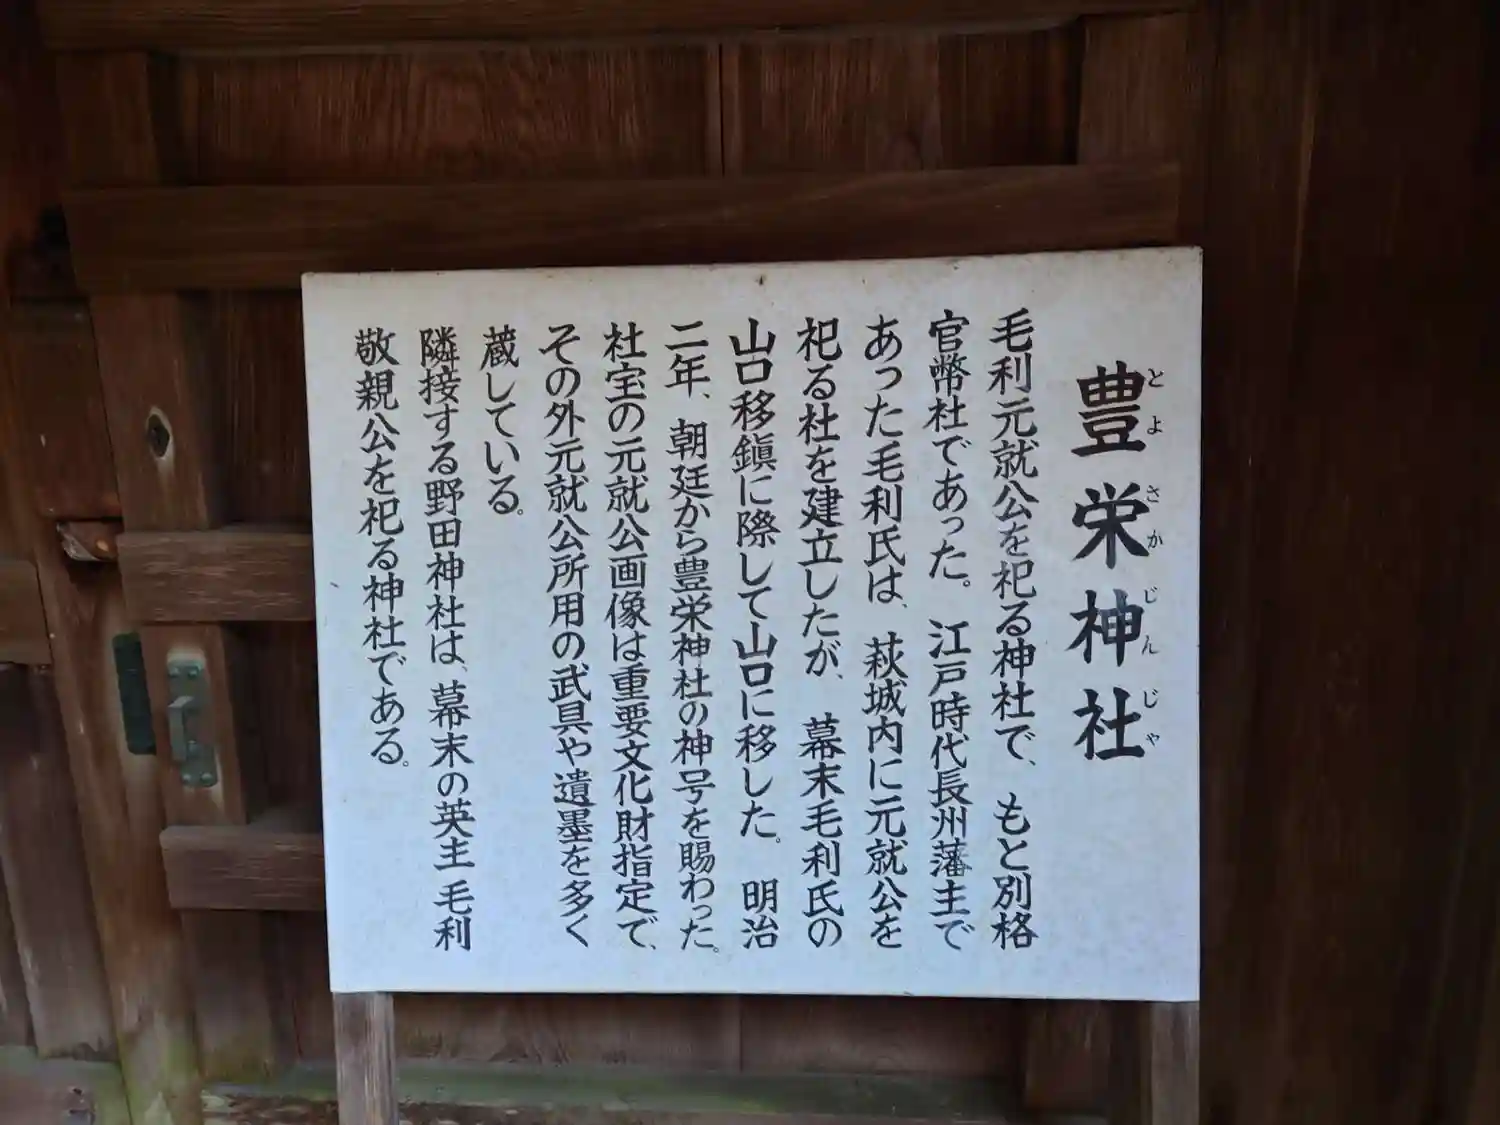 豊栄神社
とよさかじんじゃ
毛利元就公を祀る神社で、もと別格
官幣社であった。江戸時代長州藩主で
あった毛利氏は、萩城内に元就公を
祀る社を建立したが、幕末毛利氏の
山口移鎮に際して山口に移した。明治
二年、朝廷から豊栄神社の神号を賜わった。
社宝の元就公画像は重要文化財指定で、
その外元就公所用の武具や遺墨を多く
蔵している。
隣接する野田神社は、幕末の英主 毛利
敬親公を祀る神社である。